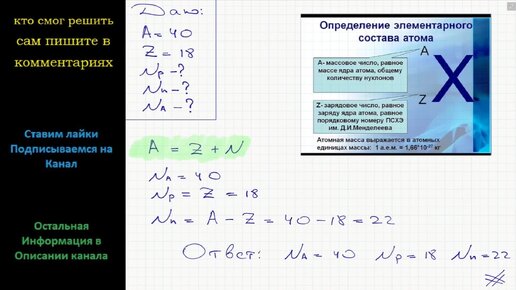 кто смог решить
сам пишите в
комментариях
Ставим лайки
Подписываемся на
Канал
Остальная
Информация в
Описании канала
Дано:
A = 40
Z = 18
Np - ?
Nn - ?
NA - ?
A = Z + N
NA = 40
Np = Z = 18
Nn = A - Z = 40 - 18 = 22
Ответ: NA = 40 Np = 18 Nn = 22
Определение элементарного
состава атома
A- массовое число, равное
массе ядра атома, общему
количеству нуклонов
Z- зарядовое число, равное
заряду ядра атома, равное
порядковому номеру ПСХЭ
им. Д.И.Менделеева
A
Z
X
Атомная масса выражается в атомных
единицах массы: 1 а.е.м. = 1,66*10⁻²⁷ кг